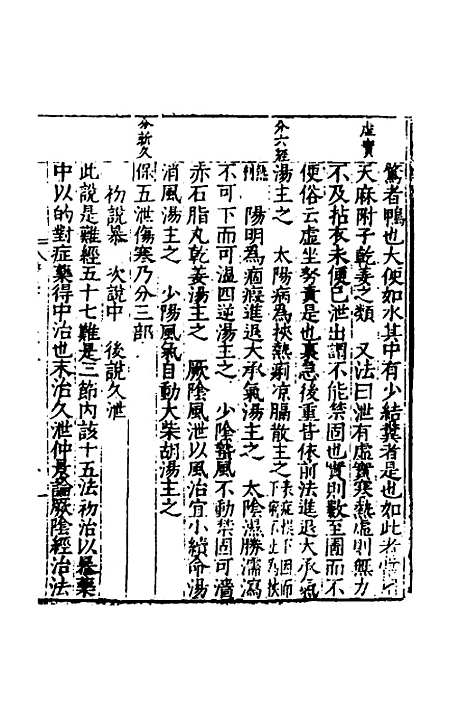 虛實
分六經
分新久
鶩者鴨也大便如水其中有少結糞者是也如此者當
天麻附子乾姜之類 又法曰泄有虛實寒熱虛則無力
不及拈衣未便已泄出謂不能禁固也實則數至圊而不
便俗云虛坐努責是也裏急後重皆依前法進退大承氣
湯主之 太陽病為挾熱痢凉膈散主之
陽明為痼瘕進退大承氣湯主之 太陰濕勝濡瀉
不可下而可溫四逆湯主之 少陰蟄風不動禁固可濇
赤石脂丸乾姜湯主之 厥陰風泄以風治宜小續命湯
消風湯主之 少陽風氣自動大柴胡湯主之
保五泄傷寒乃分三部
初說暴 次說中 後說久泄
此說是難經五十七難是三節內該十五法初治以暴藥
中以的對症藥得中治也末治久泄仲景論厥陰經治法